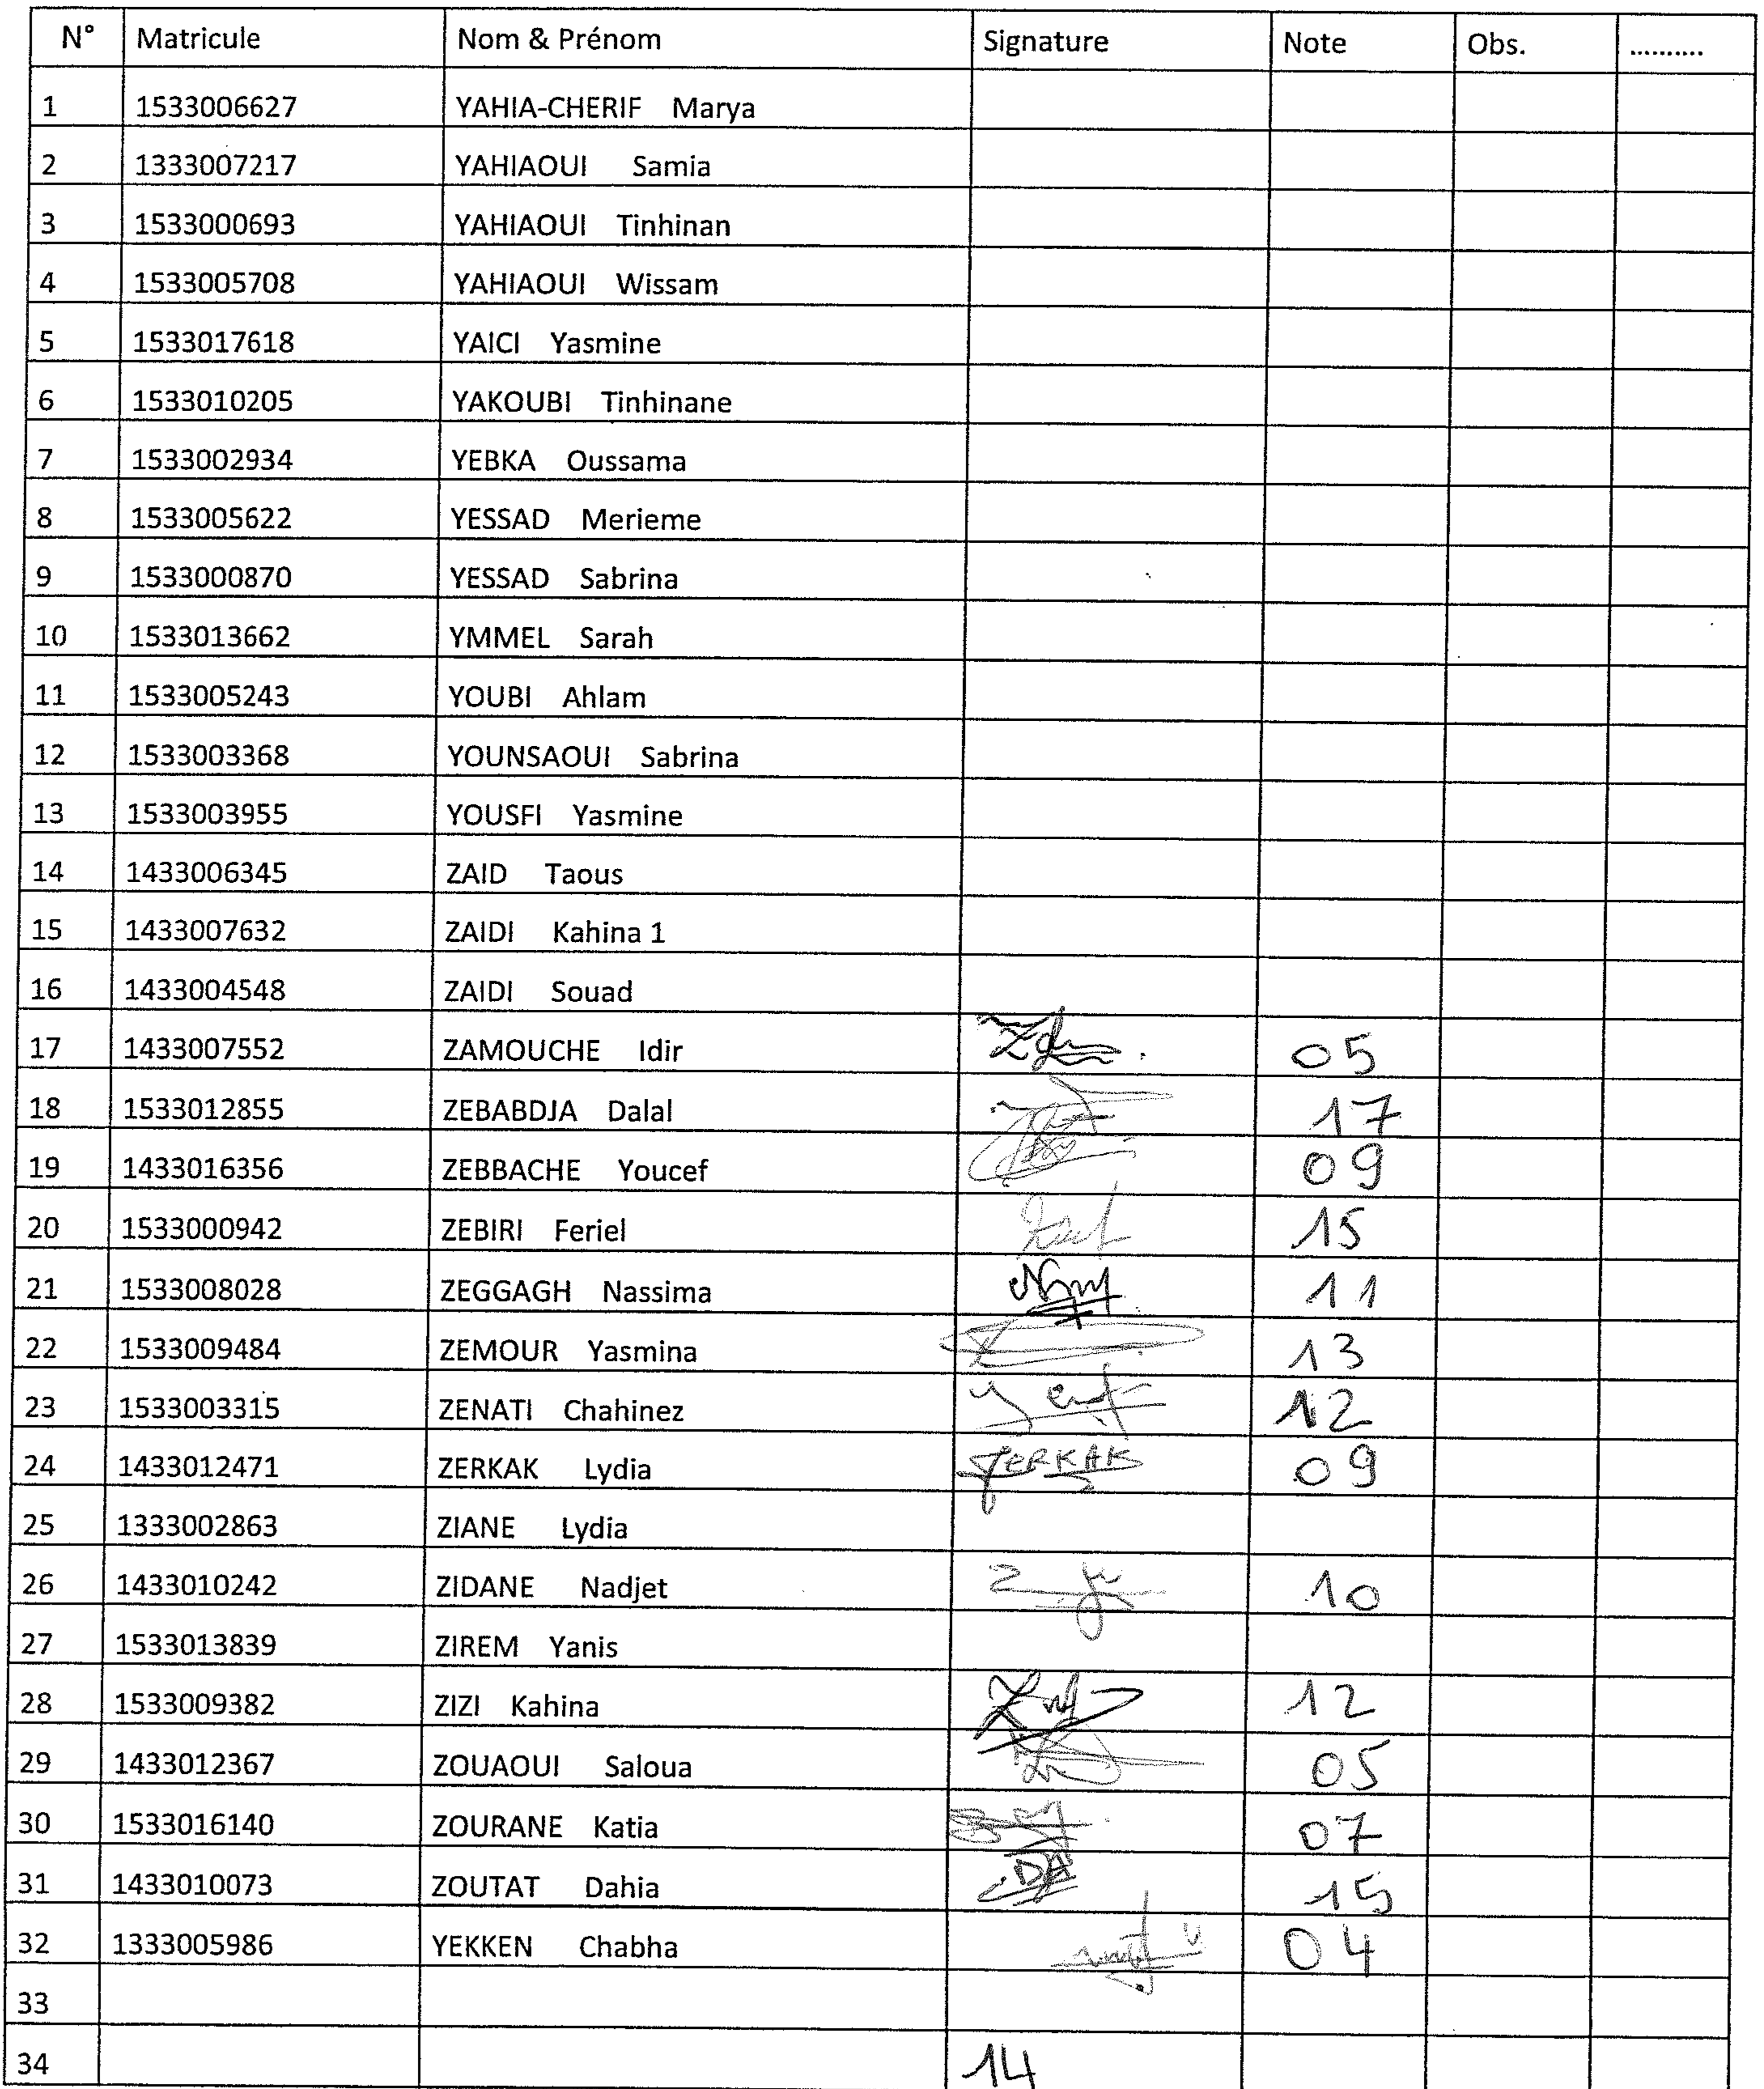 N° Matricule Nom & Prénom Signature Note Obs. ..........
1 1533006627 YAHIA-CHERIF Marya
2 1333007217 YAHIAOUI Samia
3 1533000693 YAHIAOUI Tinhinan
4 1533005708 YAHIAOUI Wissam
5 1533017618 YAICI Yasmine
6 1533010205 YAKOUBI Tinhinane
7 1533002934 YEBKA Oussama
8 1533005622 YESSAD Merieme
9 1533000870 YESSAD Sabrina
10 1533013662 YMMEL Sarah
11 1533005243 YOUBI Ahlam
12 1533003368 YOUNSAOUI Sabrina
13 1533003955 YOUSFI Yasmine
14 1433006345 ZAID Taous
15 1433007632 ZAIDI Kahina 1
16 1433004548 ZAIDI Souad
17 1433007552 ZAMOUCHE Idir 05
18 1533012855 ZEBABDJA Dalal 17
19 1433016356 ZEBBACHE Youcef 09
20 1533000942 ZEBIRI Feriel 15
21 1533008028 ZEGGAGH Nassima 11
22 1533009484 ZEMOUR Yasmina 13
23 1533003315 ZENATI Chahinez 12
24 1433012471 ZERKAK Lydia ZERKAK 09
25 1333002863 ZIANE Lydia
26 1433010242 ZIDANE Nadjet 10
27 1533013839 ZIREM Yanis
28 1533009382 ZIZI Kahina 12
29 1433012367 ZOUAOUI Saloua 05
30 1533016140 ZOURANE Katia 07
31 1433010073 ZOUTAT Dahia DA 15
32 1333005986 YEKKEN Chabha 04
33
34 14